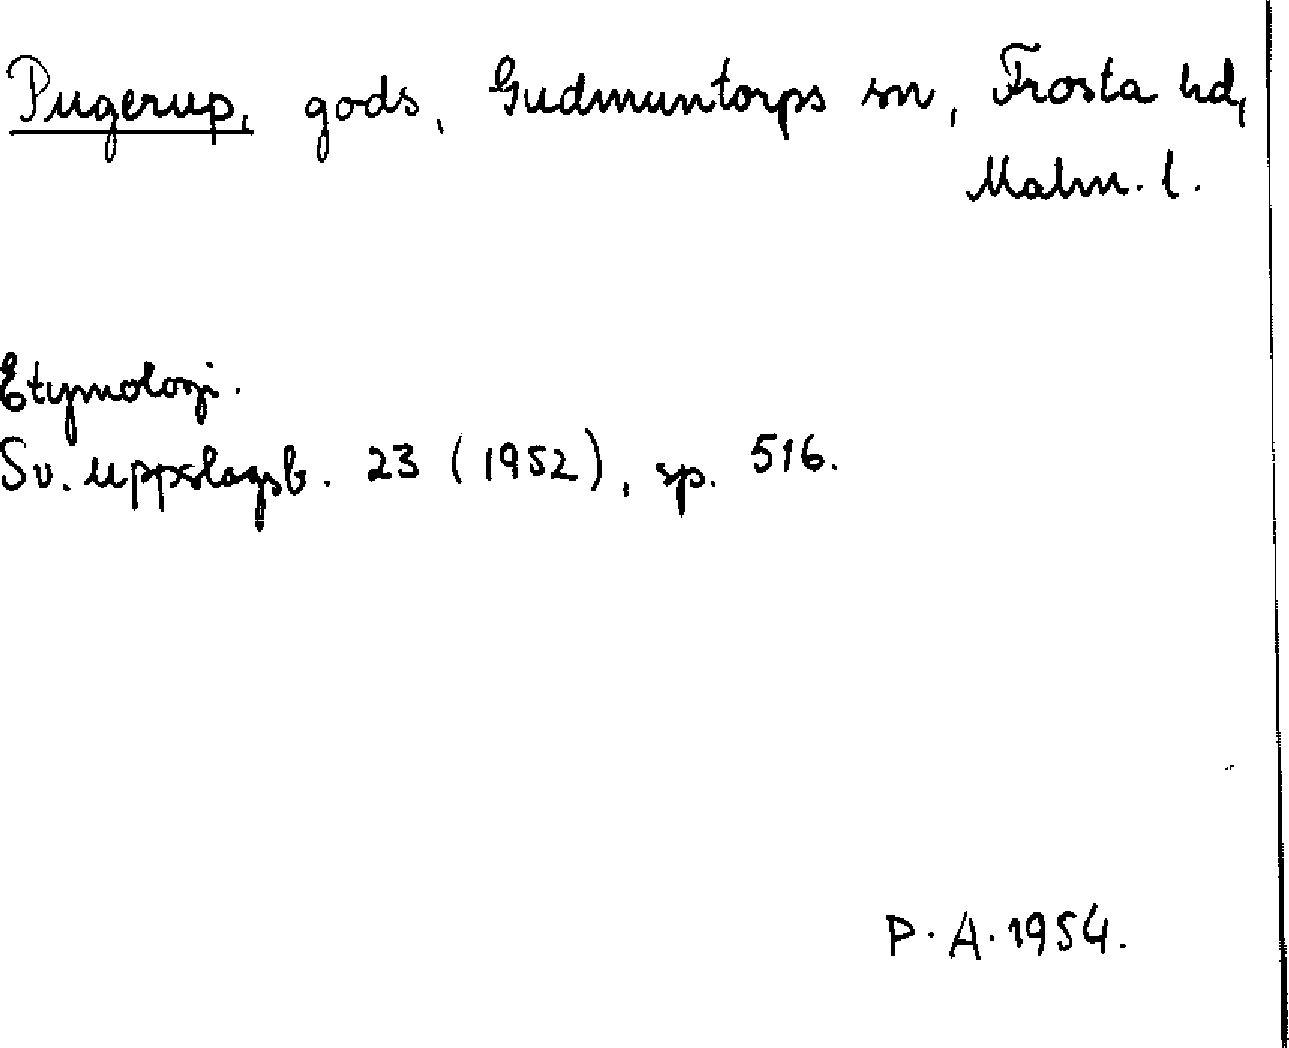 Pugerup, gods, Gudmuntorps sn, Frosta hd,
Malm. l.
Etymologi.
Sv. uppslagsb. 23 (1952), sp. 516.
P. A. 1954.